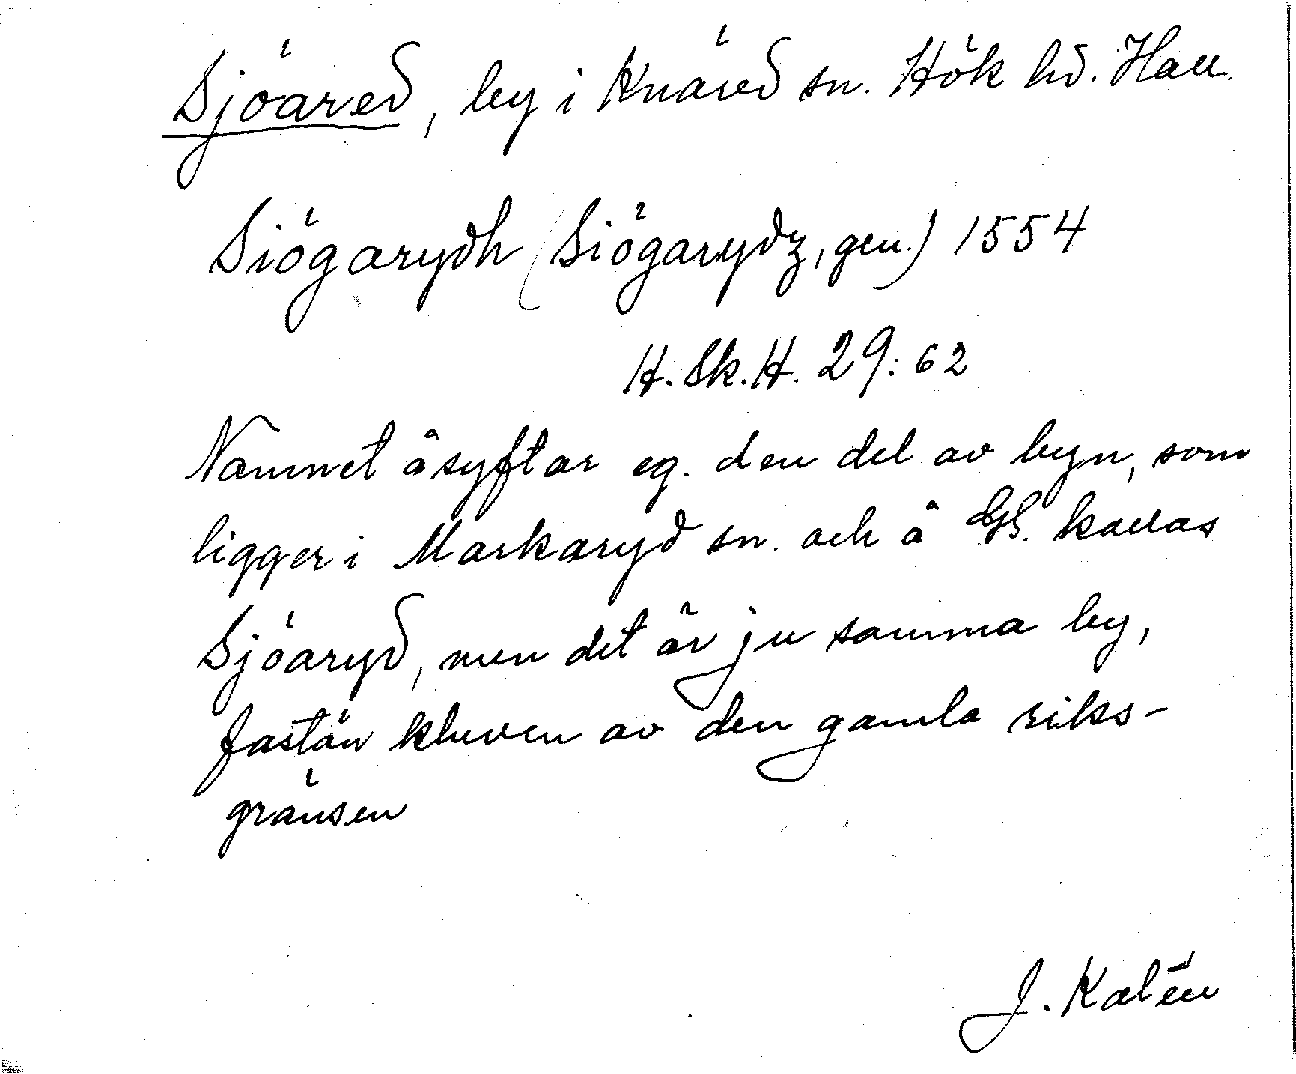 Sjöared, by i Knäred sn. Hök hd. Hall.
Siögarydh (Siögarydz, gen.) 1554
H. Sk. H. 29: 62
Namnet åsyftar eg. den del av byn, som
ligger i Markaryd sn. och å GS. kallas
Sjöaryd, men det är ju samma by,
fastän kluven av den gamla riks-
gränsen
J. Kalén